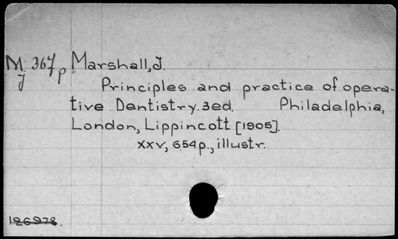 M 367p Marshall, J.
J
Principles and practice of opera-
tive Dentistry. 3ed. Philadelphia,
London, Lippincott [1905].
xxv, 654p., illustr.
126978.